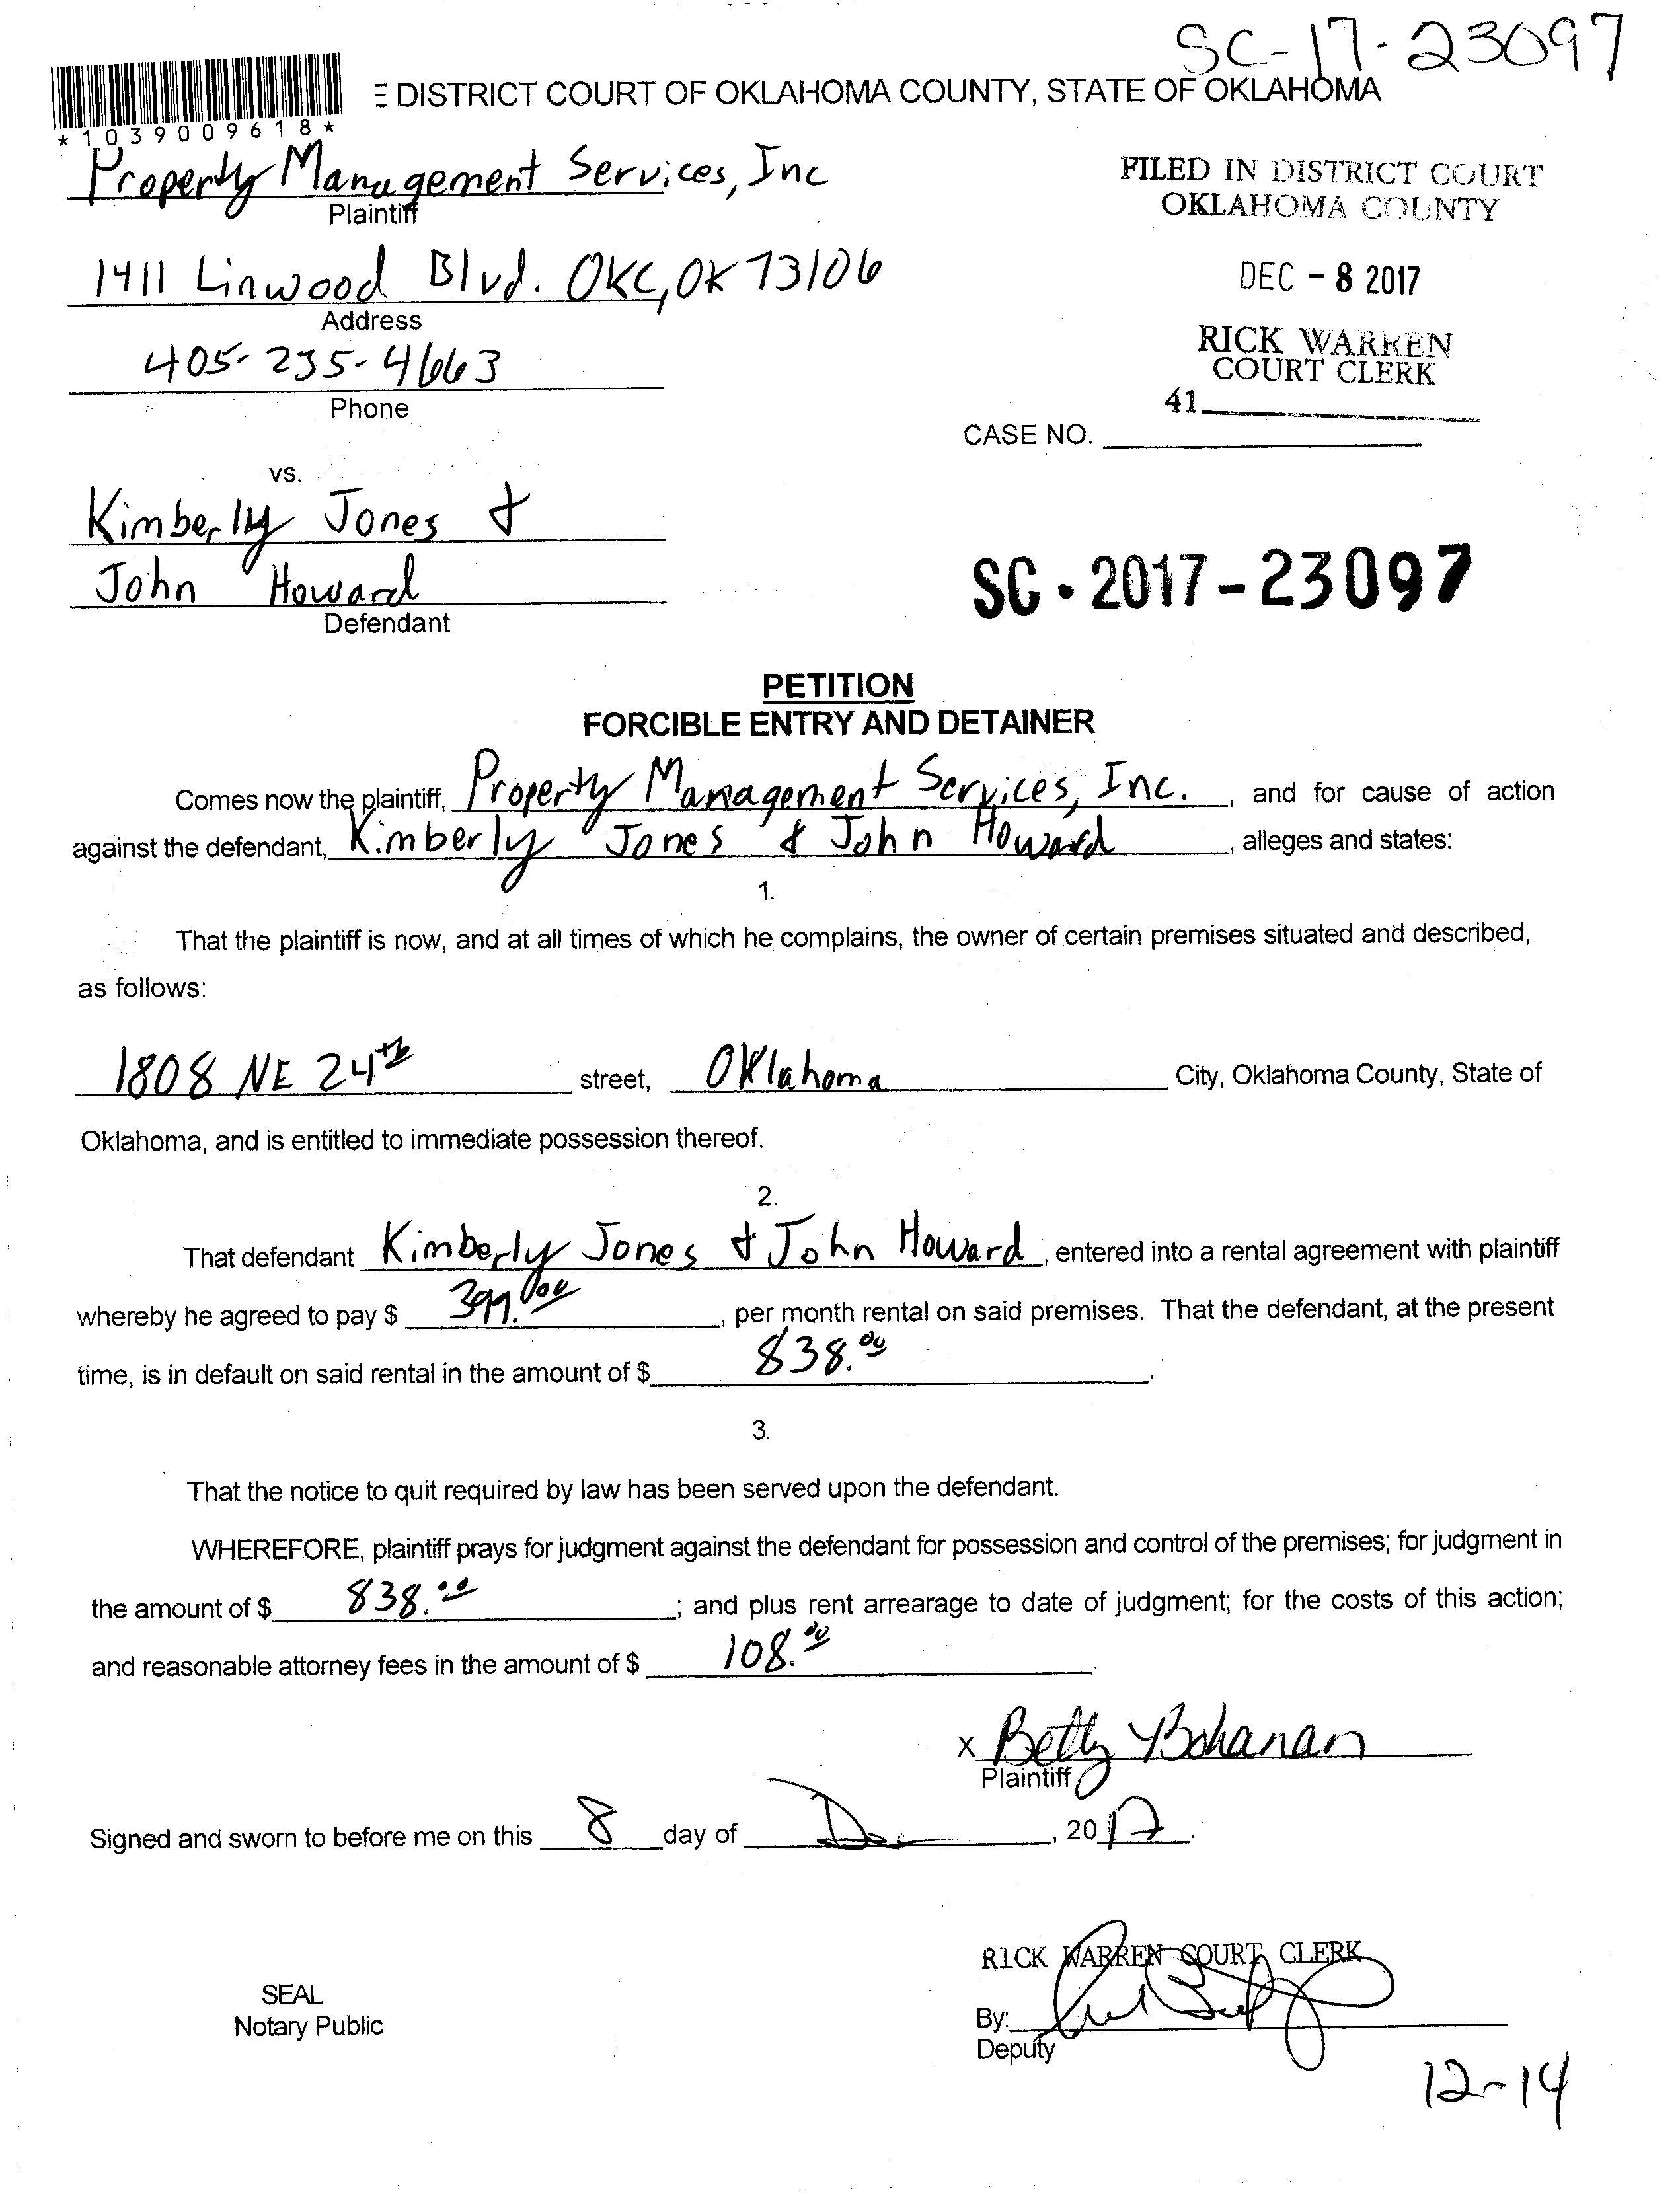 SC-17-23097
E DISTRICT COURT OF OKLAHOMA COUNTY, STATE OF OKLAHOMA
*1039009618*
Property Management Services, Inc
Plaintiff
FILED IN DISTRICT COURT
OKLAHOMA COUNTY
1411 Linwood Blvd. OKC, OK 73106
Address
DEC - 8 2017
405-235-4663
Phone
RICK WARREN
COURT CLERK
41
CASE NO.
vs.
Kimberly Jones &
John Howard
Defendant
SC - 2017 - 23097
PETITION
FORCIBLE ENTRY AND DETAINER
Comes now the plaintiff, Property Management Services, Inc. , and for cause of action
against the defendant, Kimberly Jones & John Howard , alleges and states:
1.
That the plaintiff is now, and at all times of which he complains, the owner of certain premises situated and described,
as follows:
1808 NE 24th street, Oklahoma City, Oklahoma County, State of
Oklahoma, and is entitled to immediate possession thereof.
2.
That defendant Kimberly Jones & John Howard , entered into a rental agreement with plaintiff
whereby he agreed to pay $ 399.00 , per month rental on said premises. That the defendant, at the present
time, is in default on said rental in the amount of $ 838.00 .
3.
That the notice to quit required by law has been served upon the defendant.
WHEREFORE, plaintiff prays for judgment against the defendant for possession and control of the premises; for judgment in
the amount of $ 838.00 ; and plus rent arrearage to date of judgment; for the costs of this action;
and reasonable attorney fees in the amount of $ 108.00 .
X Betty Bohanan
Plaintiff
Signed and sworn to before me on this 8 day of , 2017.
RICK WARREN COURT CLERK
SEAL
Notary Public
By:
Deputy
12-14